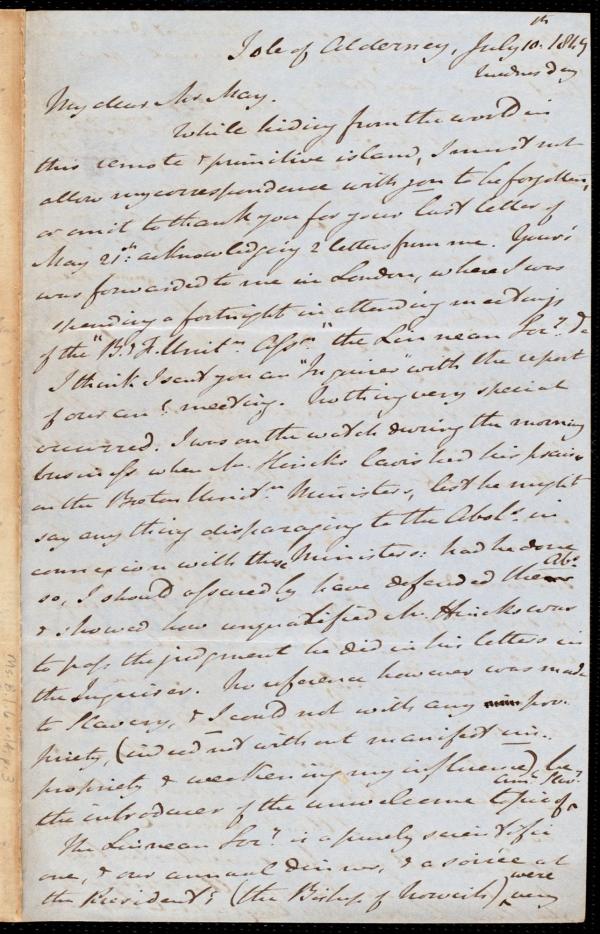 Isle of Alderney, July 10th. 1849
Wednesday
My dear Mr. May.
While hiding from the world in
this remote & primitive island, I must not
allow my correspondence with you to be forgotten,
or omit to thank you for your last letter of
May 21st. acknowledging 2 letters from me. Yours
was forwarded to me in London, where I was
spending a fortnight in attending meetings
of the "B. & F. Unitn. Assn." the Linnean Socy. &c
I think I sent you an "Inquirer" with the report
of our anl. meeting. Nothing very special
occurred. I was on the watch during the morning
business when Mr. Hincks lavished his praise
on the Boston Unitn. Ministers, lest he might
say any thing disparaging to the Abols. in
connexion with these Ministers: had he done
so, I should assuredly have defended the Abs.
& showed how unqualified Mr. Hincks was
to pass the judgment he did in his letters in
the Inquirer. No reference however was made
to Slavery, & I could not with any pro-
priety, (indeed not without manifest im-
propriety & weakening my influence) be
the introducer of the unwelcome topic of Amn. Slavy.
The Linnean Socy. is a purely scientific
one, & our annual dinner, & a soirée at
the President's (the Bishop of Norwich) were very